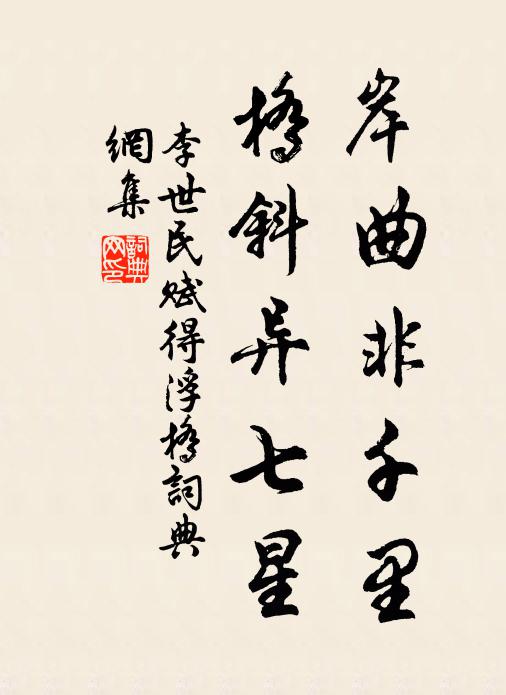 岸曲非千里
橋斜异七星
李世民賦得浮橋詞典
網集
詞典
网印